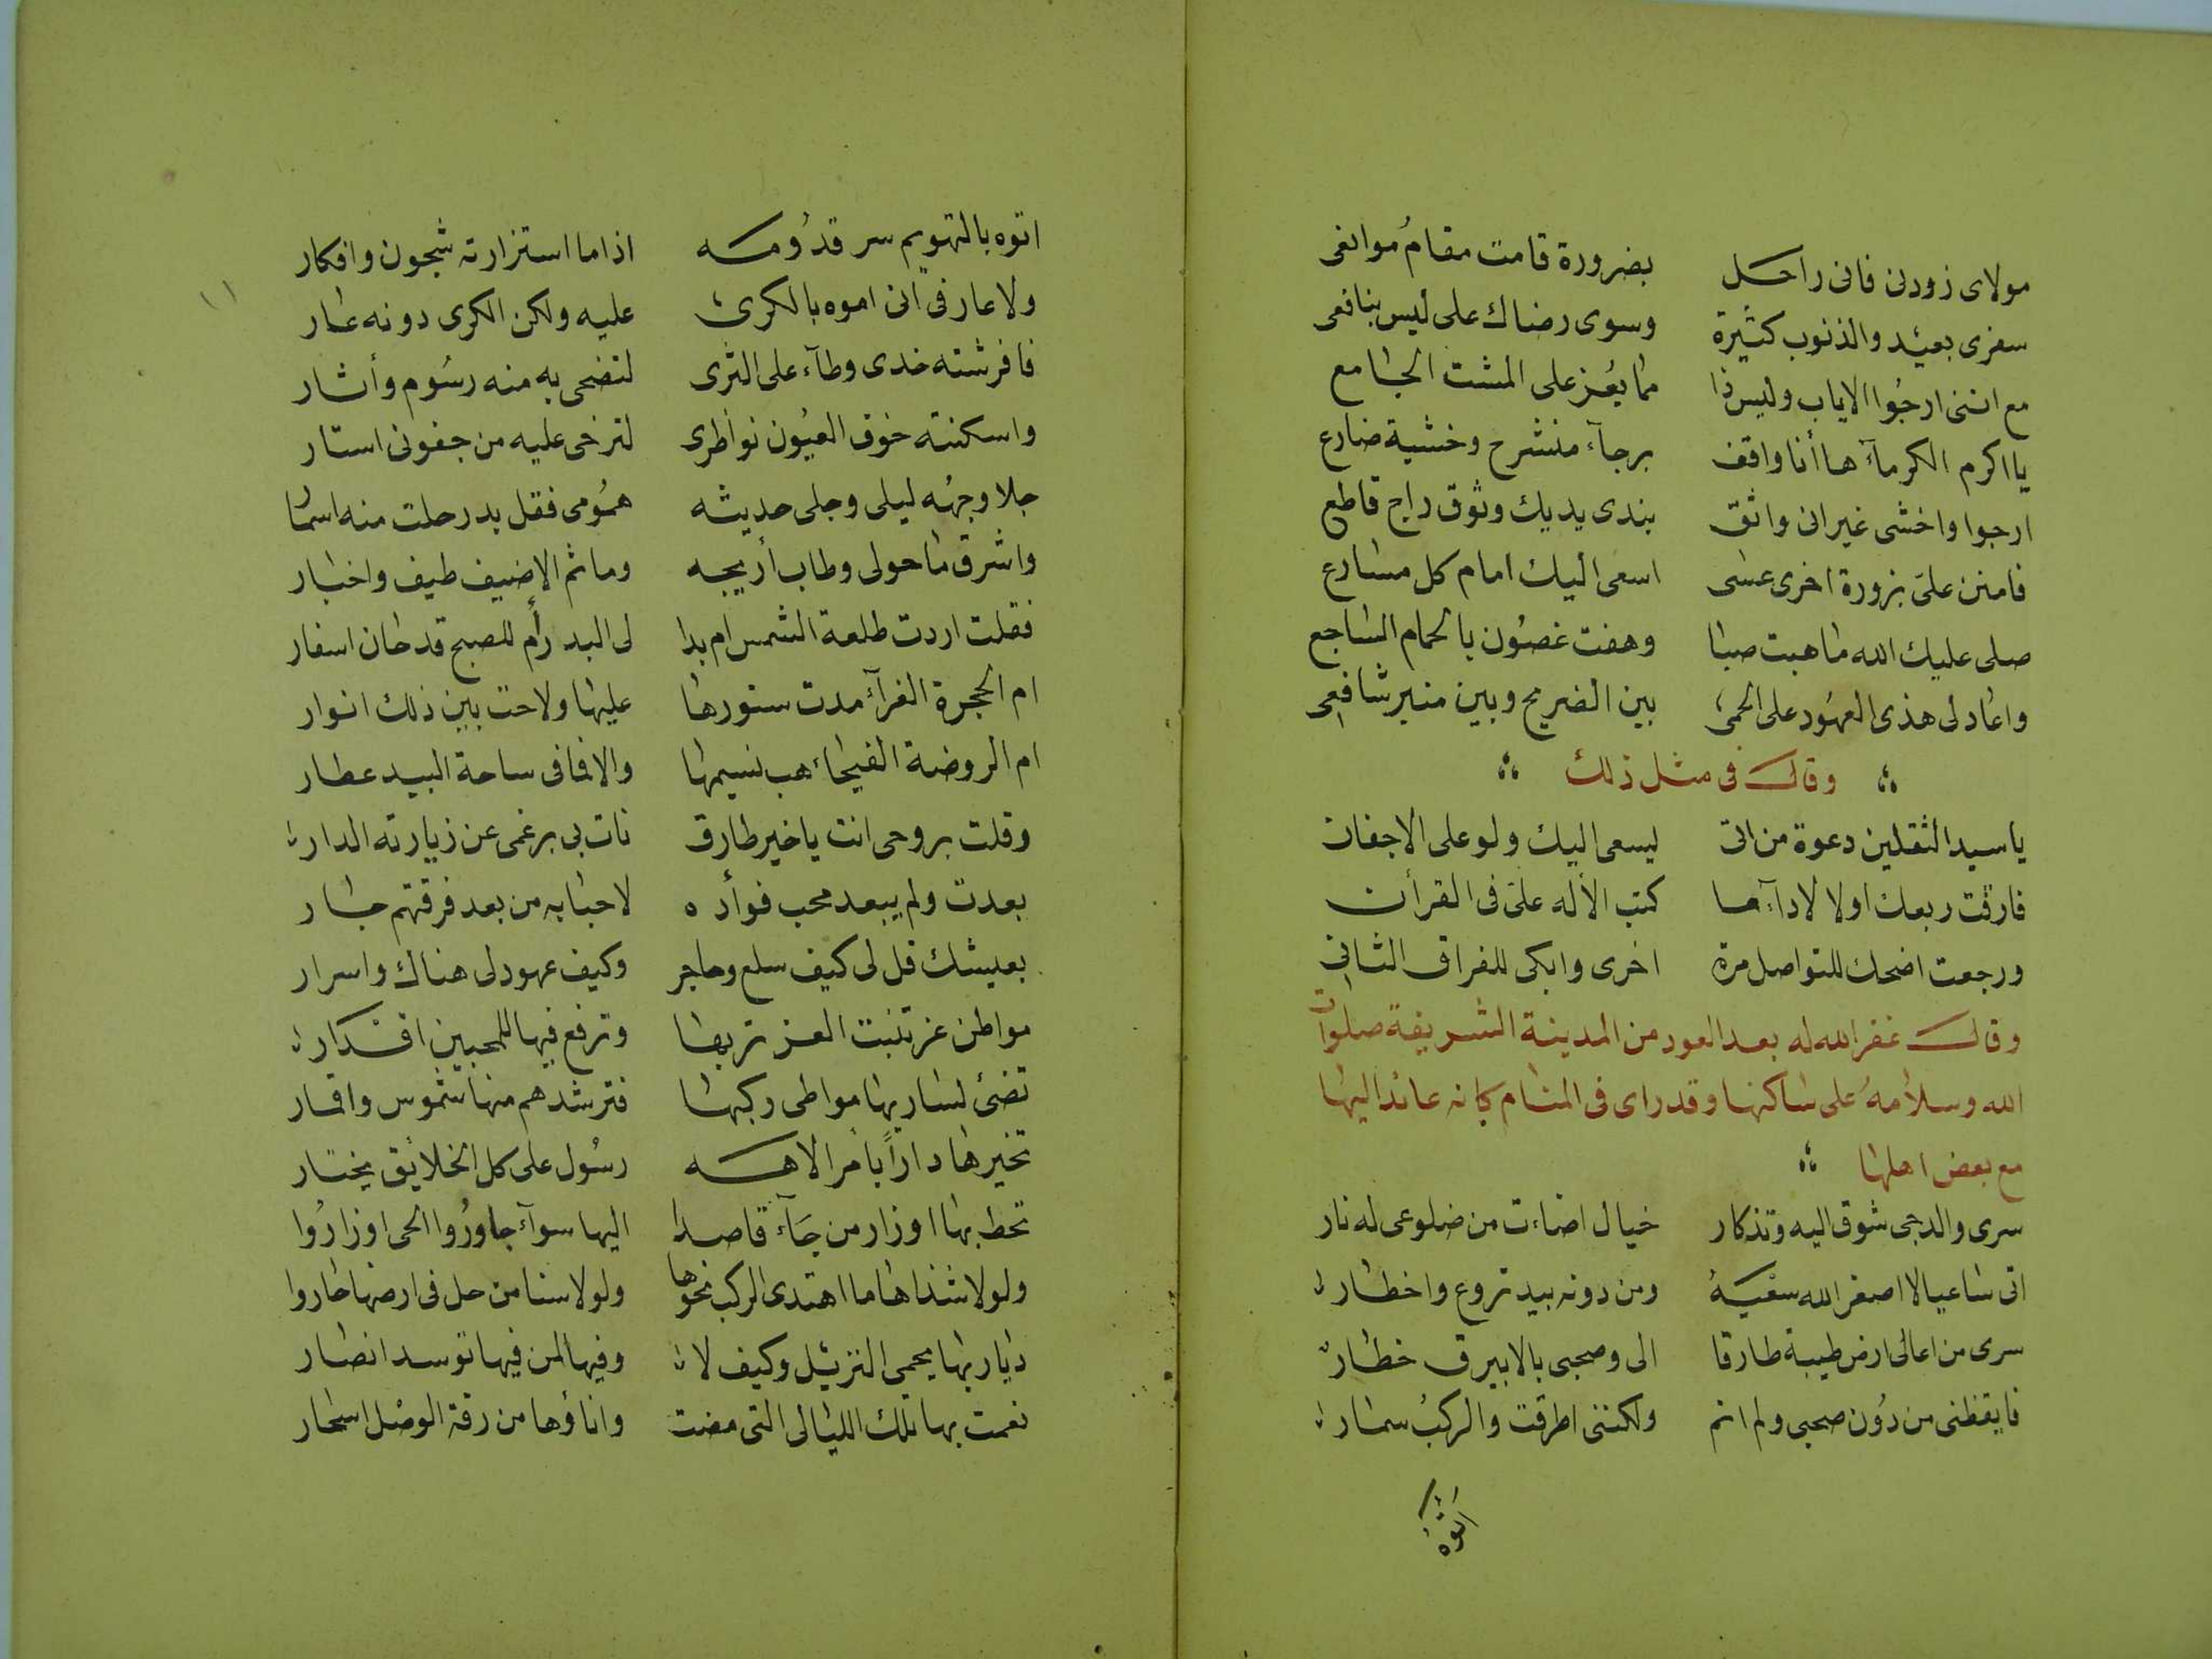 مولاى زودنى فانى راحل بضرورة قامت مقام موانعى
سفرى بعيد والذنوب كثيرة وسوى رضاك على ليس بنافعى
مع اننى ارجوا الاياب وليس ذا مما يعز على المشت الجامع
يا اكرم الكرمآء ها أنا واقف برجآء منشرح وخشية ضارع
ارجوا واخشى غير انى واثق بندى يديك وثوق راج قاطع
فامنن علىّ بزورة اخرى عسى اسعى اليك امام كل مسارع
صلى عليك الله ما هبت صبا وهفت غصون بالحمام الساجع
واعاد لى هذى العهود على الحمى بين الضريح وبين منبر شافعى
وقال فى مثل ذلك
يا سيد الثقلين دعوة من اتى ليسعى اليك ولو على الاجفان
فارقت ربعك اولا لادآء ما كتب الاله علىّ فى القرأن
ورجعت اضحك للتواصل مرة اخرى وابكى للفراق الثانى
وقال غفر الله له بعد العود من المدينة الشريفة صلوات
الله وسلامه على ساكنها وقد راى فى المنام كانه عائد اليها
مع بعض اهلها
سرى والدجى شوق اليه وتذكار خيال اضاءت من ضلوعى له نار
اتى ساعيا لا اصغر الله سعيه ومن دونه بيد تروع واخطار
سرى من اعالى ارض طيبة طارقا الى وصحبى بالابيرق خطار
فايقظنى من دون صحبى ولم انم ولكننى اطرقت والركب سمار
اتوه
١١
اتوه بالتهويم سر قدومه اذا ما استزارته شجون وافكار
ولا عار فى انى اموه بالكرى عليه ولكن الكرى دونه عار
فافرشته خدى وطآء على الثرى لتضحى به منه رسوم وأثار
واسكنته خوف العيون نواظرى لترخى عليه من جفونى استار
جلا وجهه ليلى وجلى حديثه همومى فقل بدر حلت منه اسمار
واشرق ما حولى وطاب أريجه وما ثم الا ضيف طيف واخبار
فقلت اردت طلعة الشمس ام بدا لى البدر أم للصبح قد حان اسفار
ام الحجرة الغرآء مدت ستورها عليها ولاحت بين ذلك انوار
ام الروضة الفيحاء هب نسيمها والا فما فى ساحة البيد عطار
وقلت بروحى انت يا خير طارق نات بى برغمى عن زيارته الدار
بعدت ولم يبعد محب فوأده لاحبابه من بعد فرقتهم جار
بعيشك قل لى كيف سلع وحاجر وكيف عهود لى هناك واسرار
مواطن عز تنبت العز تربها وترفع فيها للمحبين اقدار
تضئ لساريها مواطى ركبها فترشدهم منها شموس واقمار
تخيرها داراً بأمر الاهه رسول على كل الخلايق يختار
تحط بها اوزار من جآء قاصدا اليها سوآء جاوروا الحى او زاروا
ولولا شذاها ما اهتدى الركب نحوها ولولا سنا من حل فى ارضها حاروا
ديار بها يحمى النزيل وكيف لا وفيها لمن فيها توسد انصار
نعمت بها تلك الليالى التى مضت واناؤها من رقة الوصل اسحار